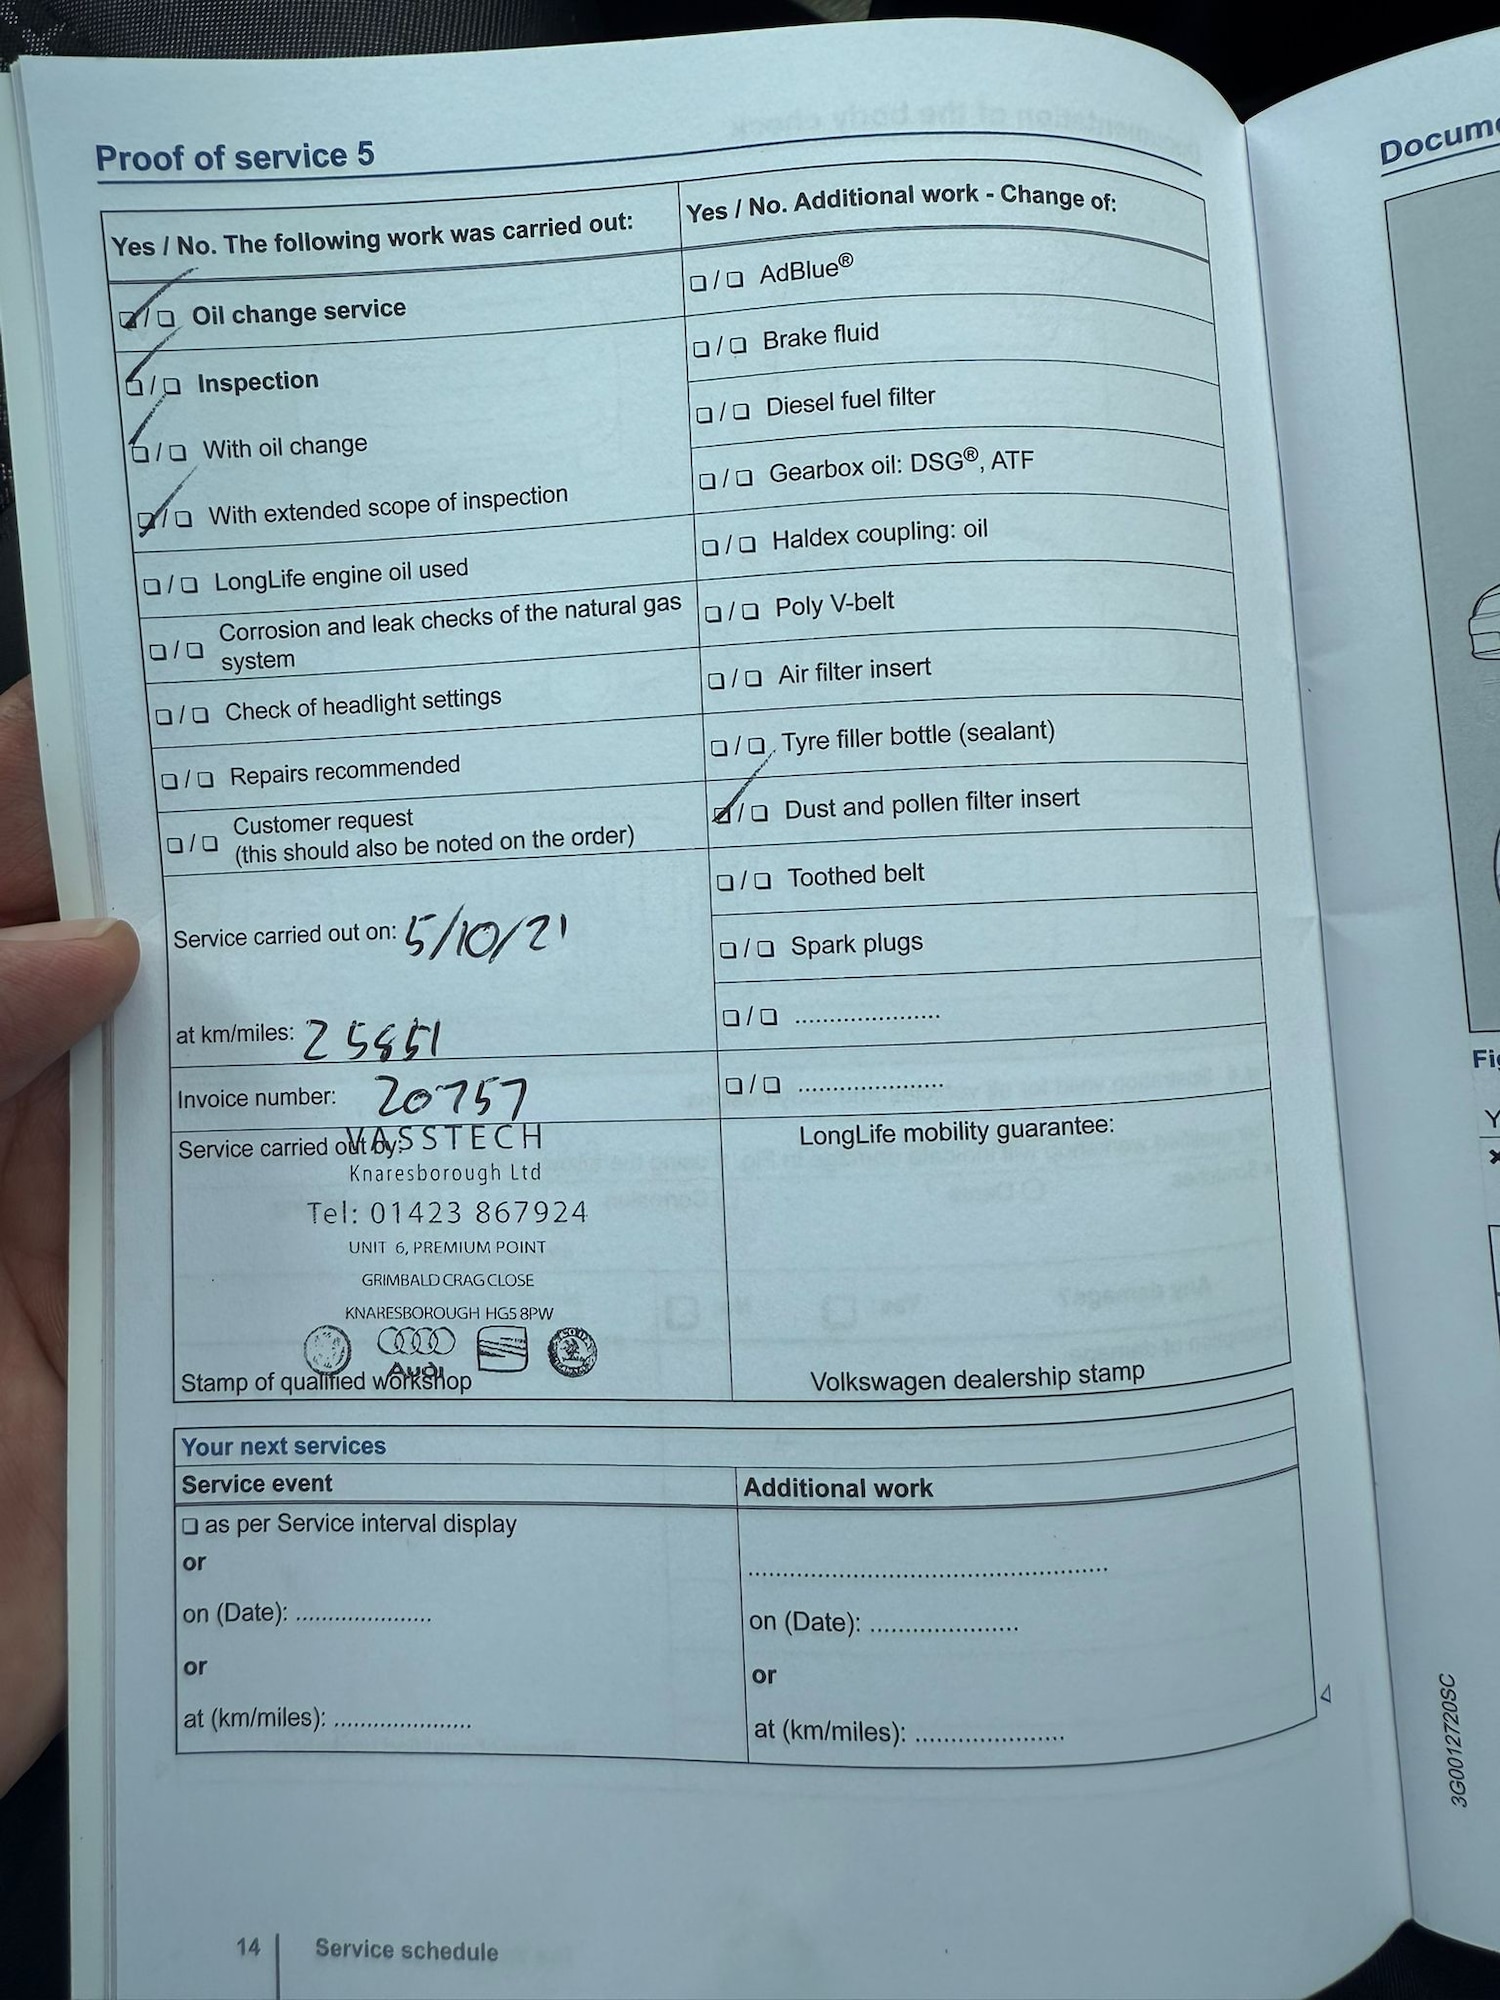 Proof of service 5
Yes / No. The following work was carried out:
☑ / ❏ Oil change service
☑ / ❏ Inspection
☑ / ❏ With oil change
☑ / ❏ With extended scope of inspection
❏ / ❏ LongLife engine oil used
❏ / ❏ Corrosion and leak checks of the natural gas
system
❏ / ❏ Check of headlight settings
❏ / ❏ Repairs recommended
❏ / ❏ Customer request
(this should also be noted on the order)
Service carried out on: 5/10/21
at km/miles: 25851
Invoice number: 20757
Service carried out by:
VASSTECH
Knaresborough Ltd
Tel: 01423 867924
UNIT 6, PREMIUM POINT
GRIMBALD CRAG CLOSE
KNARESBOROUGH HG5 8PW
Audi
Stamp of qualified workshop
Yes / No. Additional work - Change of:
❏ / ❏ AdBlue®
❏ / ❏ Brake fluid
❏ / ❏ Diesel fuel filter
❏ / ❏ Gearbox oil: DSG®, ATF
❏ / ❏ Haldex coupling: oil
❏ / ❏ Poly V-belt
❏ / ❏ Air filter insert
❏ / ❏ Tyre filler bottle (sealant)
☑ / ❏ Dust and pollen filter insert
❏ / ❏ Toothed belt
❏ / ❏ Spark plugs
❏ / ❏ .....................
❏ / ❏ .....................
LongLife mobility guarantee:
Volkswagen dealership stamp
Your next services
Service event
❏ as per Service interval display
or
on (Date): .....................
or
at (km/miles): .....................
Additional work
.....................................................
on (Date): .....................
or
at (km/miles): .....................
14 Service schedule
3G0012720SC